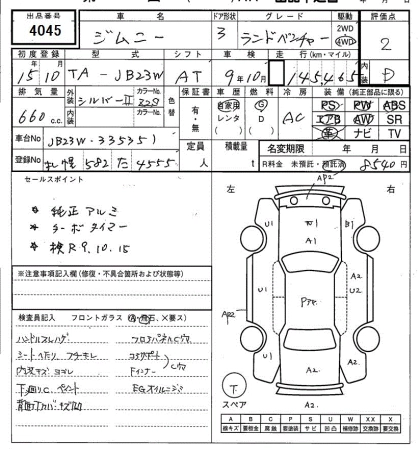 出品番号 車名 ドア形状 グレード 駆動 評価点
4045 ジムニー 3 ランドベンチャー 2WD 4WD 2
初度登録 型式 シフト 車検 走行(km・マイル) 内装
15年10月 TA-JB23W AT 9年10月 145,465 D
排気量 外装 シルバーII カラーNo. Z2S 色替 保証書 車歴 燃料 冷房 装備(純正部品に限る)
660c.c. 内装 カラーNo. 有・無 自家用 レンタ ( ) G D ( ) AC PS PW ABS
エアB AW SR
革 ナビ TV
車台No JB23W-335351 定員 人 積載量 t 名変期限 年 月 日
登録No 札幌582た4555 R料金 未預託・預託済 8540円
セールスポイント
* 純正アルミ
* ターボタイマー
* 検R9.10.15
※注意事項記入欄(修復・不具合箇所および状態等)
検査員記入 フロントガラス(X要ス)
ハンドルスレハゲ
シートヘタリ
内装キズヨゴレ
下廻りC ペイント
左 右
AP2
U1 W1 U1
A1
U1 A2
AP2 U2 U2
A2 A2
A2
下
スペア
A B C P S U W XX X
線キズ 要板金 腐蝕 要塗装 サビ 凹凸 補修跡 交換跡 要交換